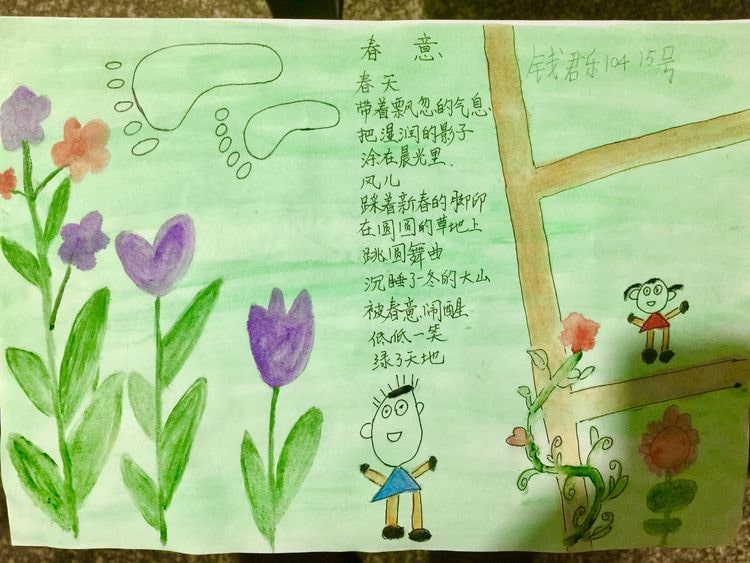 春意
钱君乐104 15号
春天
带着飘忽的气息
把湿润的影子
涂在晨光里
风儿
踩着新春的脚印
在圆圆的草地上
跳圆舞曲
沉睡了一冬的大山
被春意闹醒
低低一笑
绿了天地